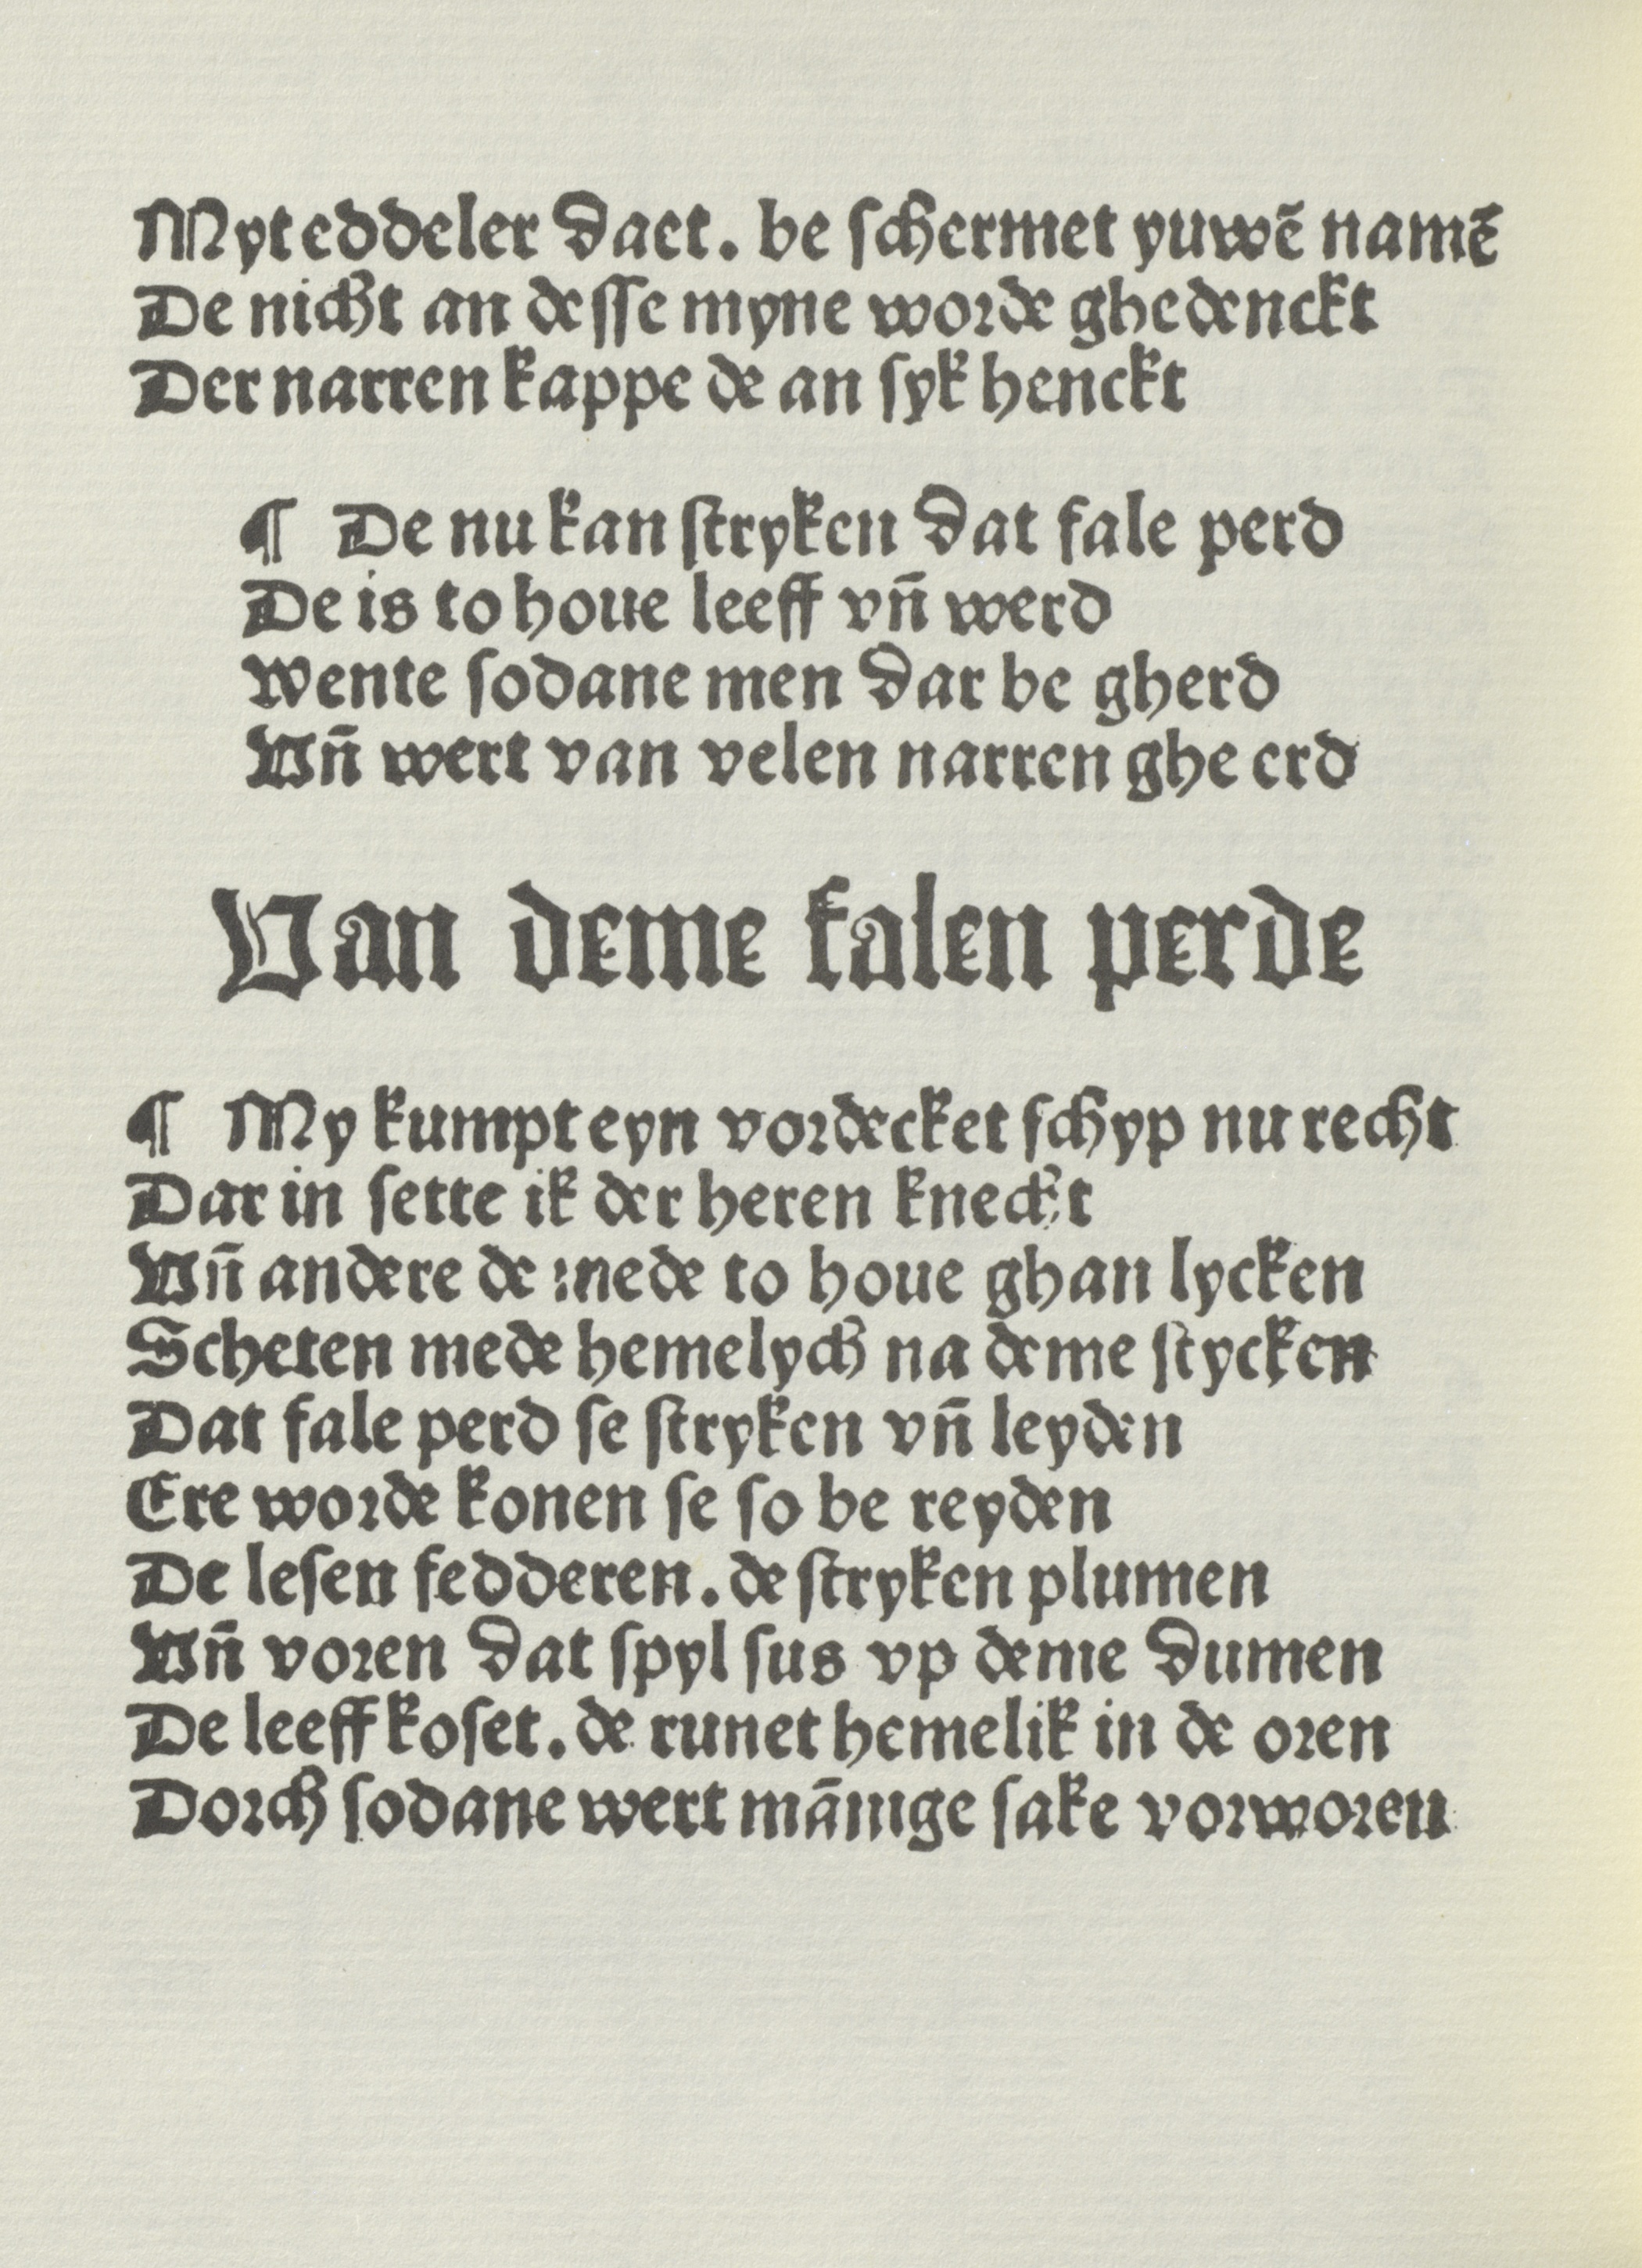 Myt eddeler daet. be schermet yuwē namē
De nicht an desse myne worde ghedenckt
Der narren kappe de an syk henckt
¶ De nu kan stryken dat fale perd
De is to houe leeff vn̄ werd
Wente sodane men dar be gherd
Vn̄ wert van velen narren ghe erd
Van deme falen perde
¶ My kumpt eyn vordecket schyp nu recht
Dar in sette ik der heren knecht
Vn̄ andere de mede to houe ghan lycken
Scheten mede hemelych na deme stycken
Dat fale perd se stryken vn̄ leyden
Ere worde konen se so be reyden
De lesen fedderen. de stryken plumen
Vn̄ voren dat spyl sus vp deme dumen
De leeff koset. de runet hemelik in de oren
Dorch sodane wert mānige sake vorworen